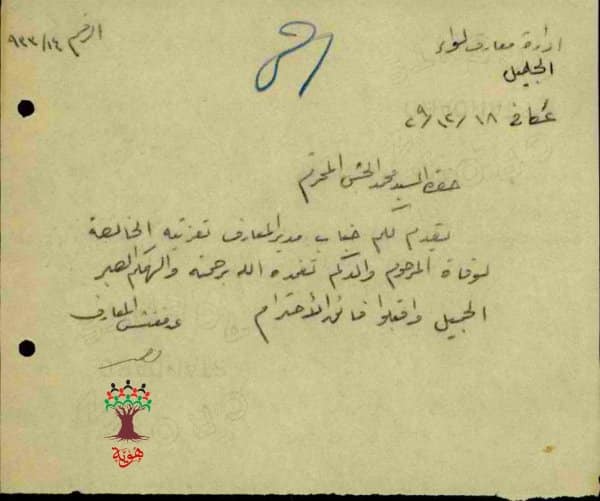 ادارة معارف لواء
الجليل
الرقم ٩٣٣/١٤
عكا في ١٨/١٢/٣٩
حضرة السيد محمد الحسن المحترم
يقدم لكم جناب مدير المعارف تعزيته الخالصة
لوفاة المرحوم والدكم تغمده الله برحمته والهمكم الصبر
الجميل واقبلوا فائق الاحترام
عن مفتش المعارف
هوية